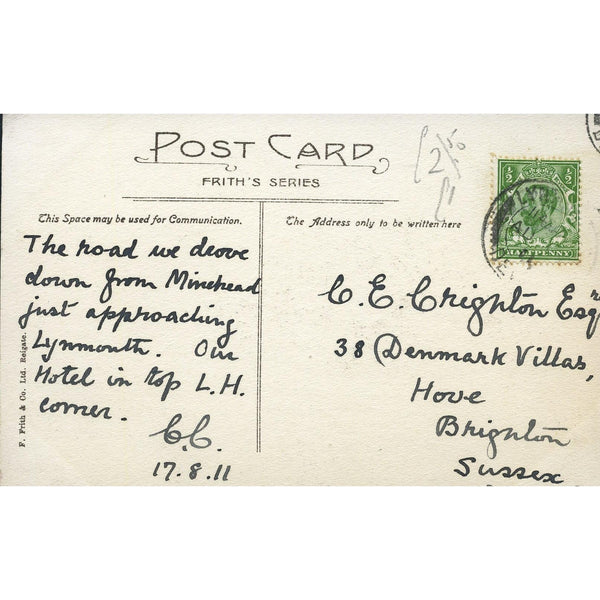 POST CARD
FRITH'S SERIES
This Space may be used for Communication.
The Address only to be written here
The road we drove
down from Minehead
just approaching
Lynmouth. Our
Hotel in top L.H.
corner.
C.C.
17.8.11
C. E. Crighton Esqr
38 Denmark Villas,
Hove
Brighton
Sussex
F. Frith & Co. Ltd. Reigate.
½ ½
HALFPENNY
2/50
£1